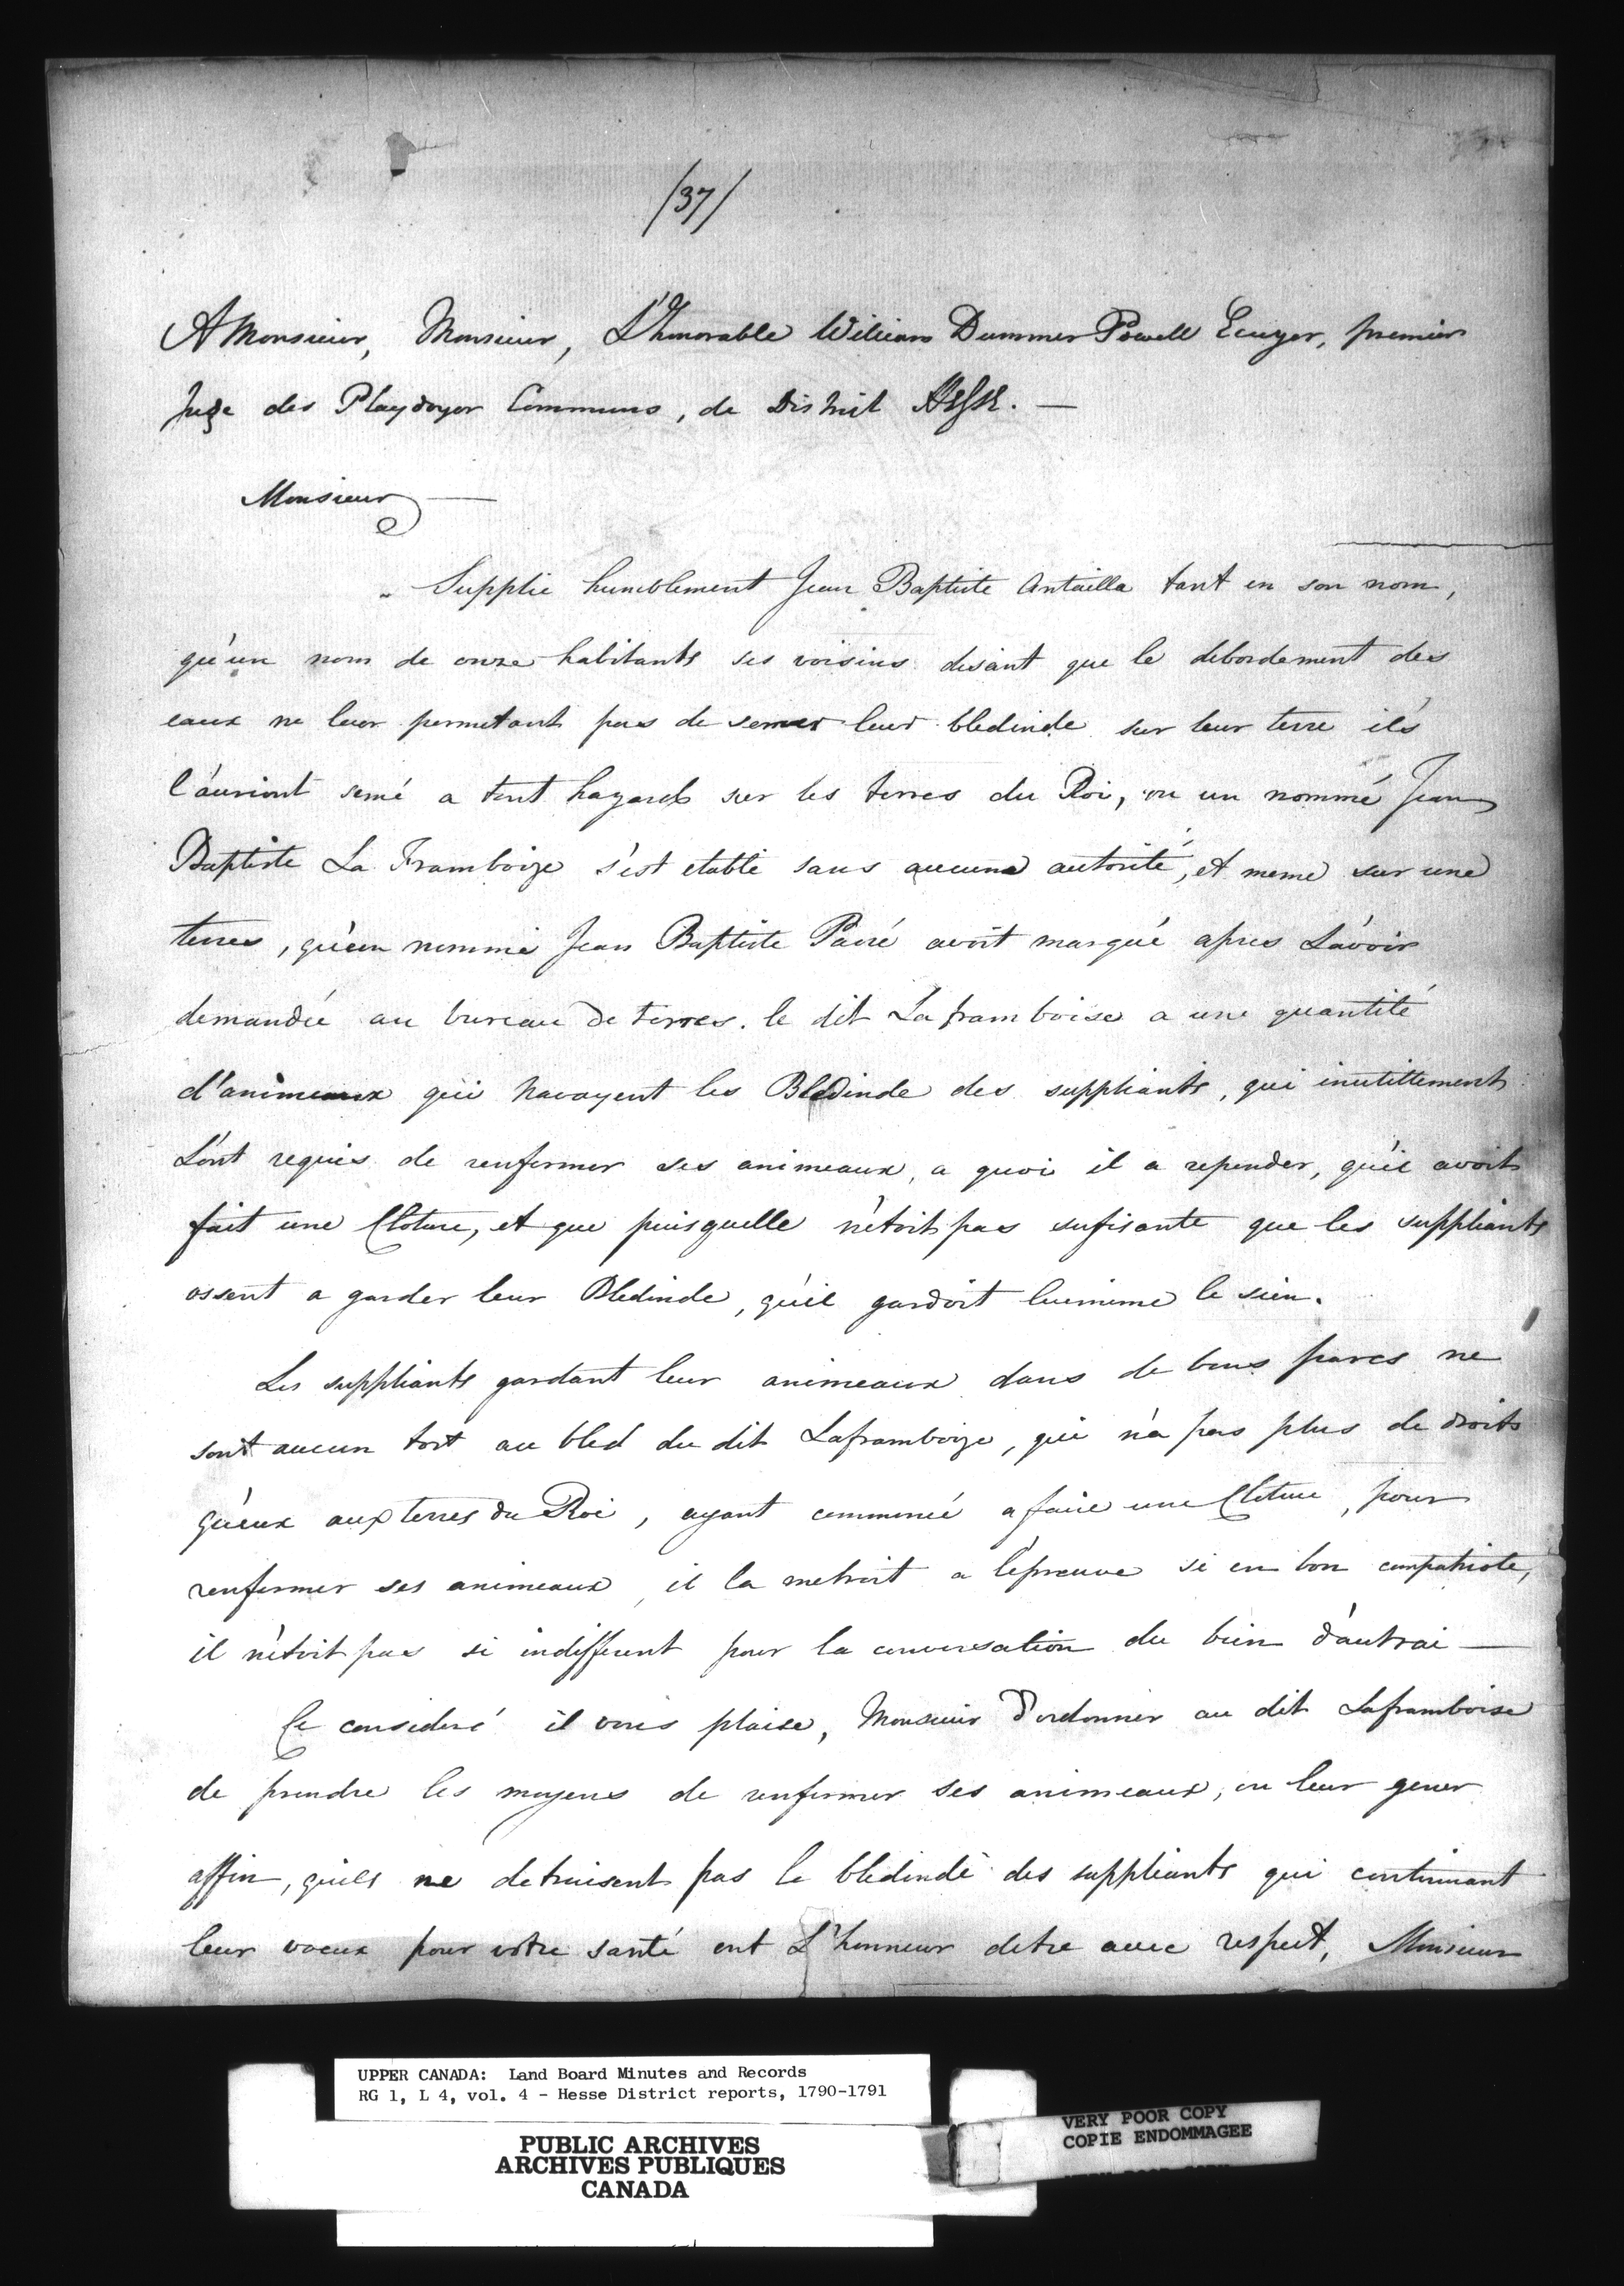 /37/
A Monsieur, Monsieur, L'Honorable William Dummer Powell Ecuyer, premier
Juge des Playdoyer Communs, de District Hesse. —
Monsieur —
Supplie humblement Jean Baptiste Antailla tant en son nom,
qu'un nom de onze habitants ses voisins disant que le debordement des
eaux ne leur permetant pas de semer leur bledinde sur leur terre ils
l'auriont semé a tout hazards sur les terres du Roi, ou un nommé Jean
Baptiste La Framboize s'est etabli sans aucune autorité, et meme sur une
terres, qu'un nommé Jean Baptiste Paré avoit marqué apres L'avoir
demandée au bureau de terres. le dit Laframboise a une quantité
d'animeaux qui ravagent les Bledinde des suppliants, qui inutillement
L'ont requis de renfermer ses animeaux, a quoi il a reponder, qu'il avoit
fait une Cloture, et que puisquelle n'etoit pas sufisante que les suppliants
ossent a garder leur Bledinde, qu'il gardoit luimime le sien.
Les suppliants gardant leur animeaux dans de bons parcs ne
sont aucun tort au bled du dit Laframboize, qui n'a pas plus de droits
qu'eux aux terres du Roi, ayant commencé a faire une Cloture, pour
renfermer ses animeaux, il la metroit a l'epreuve si en bon compatriote,
il n'etoit pas si indifferent pour la conversation du bien d'autrai —
Ce consideré il vous plaise, Monsieur D'ordonner au dit Laframboise
de prendre les moyens de renfermer ses animeaux, ou leur gener
affin, quils ne detruisent pas le bledinde des suppliants qui continuant
leur voeux pour votre santé ont L'honneur detre avec respect, Monsieur
UPPER CANADA: Land Board Minutes and Records
RG 1, L 4, vol. 4 - Hesse District reports, 1790-1791
PUBLIC ARCHIVES
ARCHIVES PUBLIQUES
CANADA
VERY POOR COPY
COPIE ENDOMMAGEE